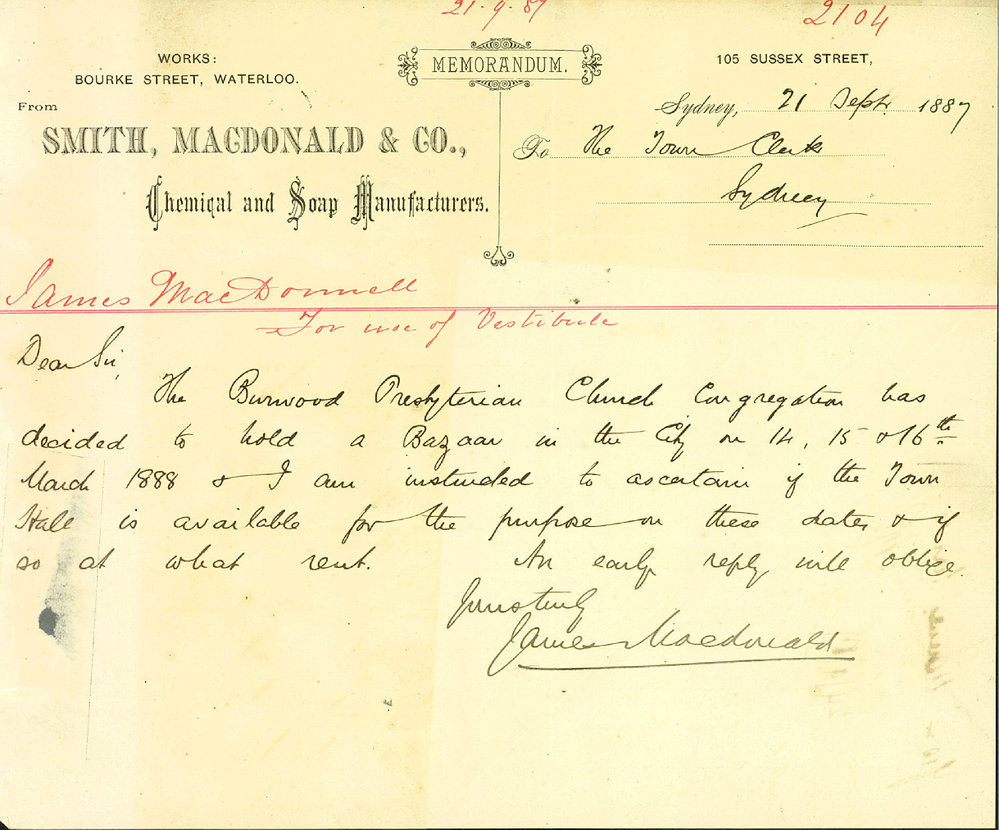 21.9.87
2104
WORKS:
BOURKE STREET, WATERLOO.
MEMORANDUM.
105 SUSSEX STREET,
From
SMITH, MACDONALD & CO.,
Chemical and Soap Manufacturers.
Sydney, 21 Sept. 1887
To The Town Clerk
Sydney
James MacDonnell
For use of Vestibule
Dear Sir,
The Burwood Presbyterian Church Congregation has
decided to hold a Bazaar in the City on 14, 15 & 16th
March 1888 & I am instructed to ascertain if the Town
Hall is available for the purpose on these dates & if
so at what rent. An early reply will oblige.
Yours truly
James Macdonald